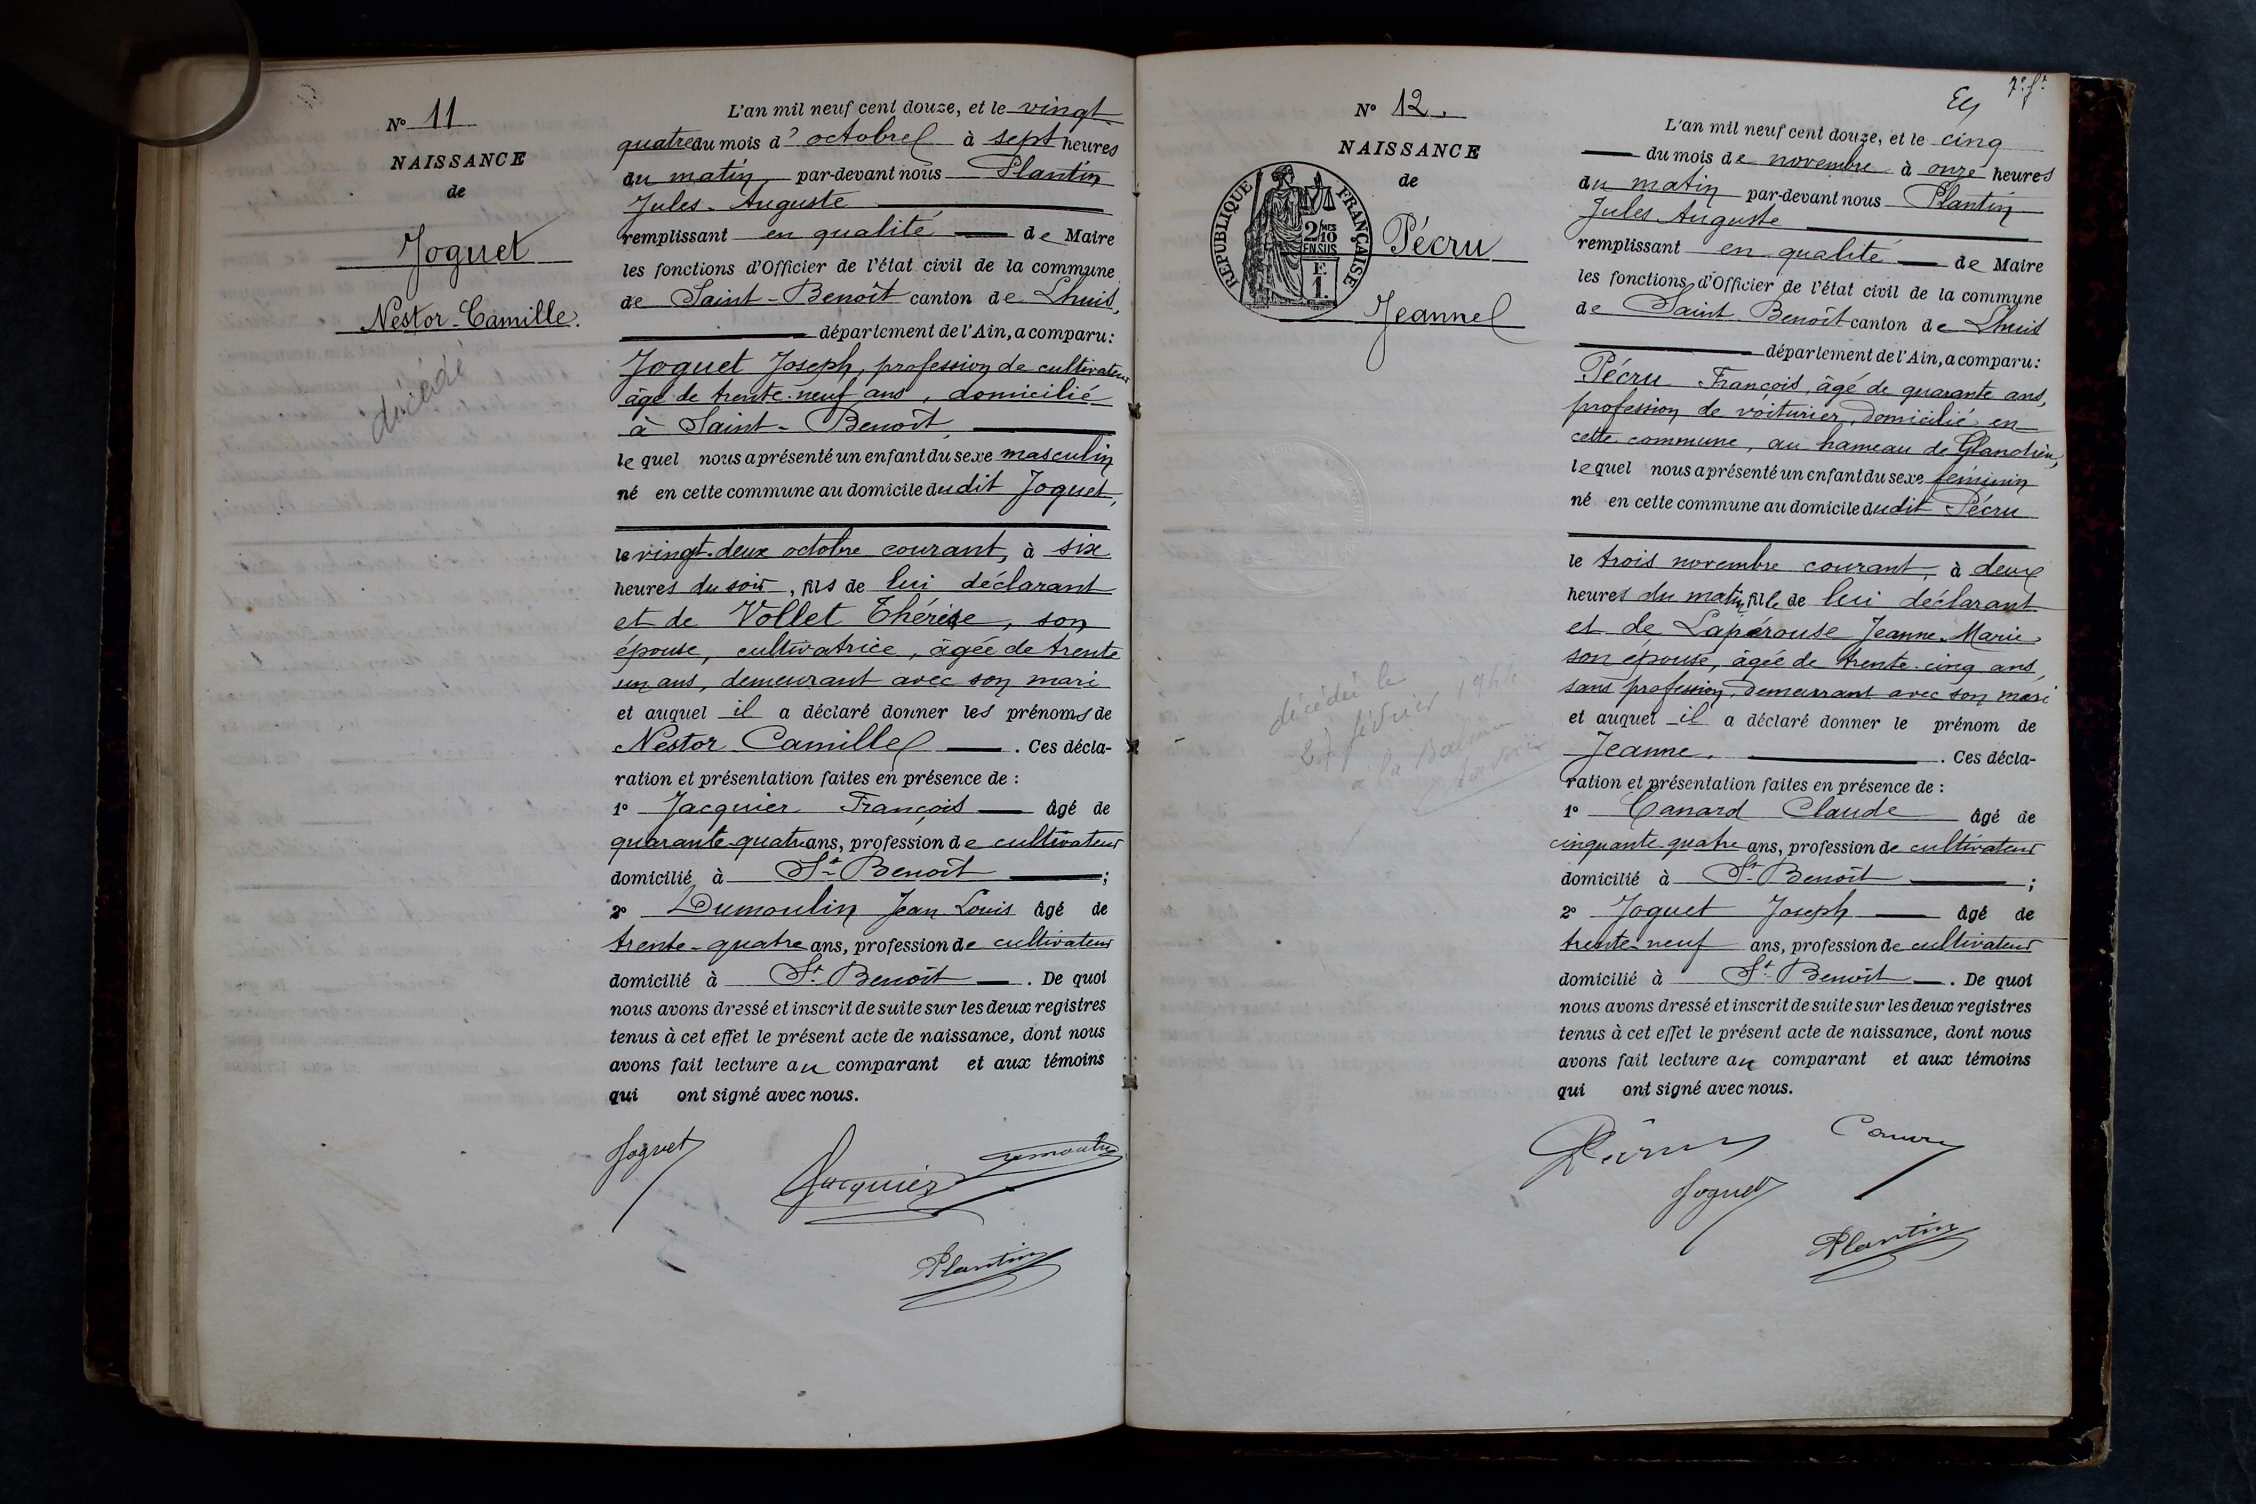 N° 11
NAISSANCE
de
Joguet
Nestor-Camille.
décédé
L'an mil neuf cent douze, et le vingt
quatre du mois d'octobre à sept heures
du matin, par-devant nous Plantin
Jules-Auguste
remplissant en qualité de Maire
les fonctions d'Officier de l'état civil de la commune
de Saint-Benoît canton de Lhuis,
département de l'Ain, a comparu:
Joguet Joseph, profession de cultivateur
âgé de trente-neuf ans, domicilié
à Saint-Benoît,
lequel nous a présenté un enfant du sexe masculin
né en cette commune au domicile dudit Joguet,
le vingt-deux octobre courant, à six
heures du soir, fils de lui déclarant
et de Vollet Thérèse, son
épouse, cultivatrice, âgée de trente
un ans, demeurant avec son mari
et auquel il a déclaré donner les prénoms de
Nestor Camille. Ces décla-
ration et présentation faites en présence de :
1° Jacquier François âgé de
quarante-quatre ans, profession de cultivateur
domicilié à St-Benoît ;
2° Dumoulin Jean Louis âgé de
trente-quatre ans, profession de cultivateur
domicilié à St-Benoît. De quoi
nous avons dressé et inscrit de suite sur les deux registres
tenus à cet effet le présent acte de naissance, dont nous
avons fait lecture au comparant et aux témoins
qui ont signé avec nous.
Joguet
Jacquier
Dumoulin
Plantin
7e ft
N° 12.
NAISSANCE
de
RÉPUBLIQUE FRANÇAISE
2/10
EN SUS
F.
1.
Pécru
Jeanne
décédée le
27 février 1944
à la Balme
L'an mil neuf cent douze, et le cinq
du mois de novembre à onze heures
du matin par-devant nous Plantin
Jules Auguste
remplissant en qualité de Maire
les fonctions d'Officier de l'état civil de la commune
de Saint-Benoît canton de Lhuis
département de l'Ain, a comparu:
Pécru François, âgé de quarante ans,
profession de voiturier, domicilié en
cette commune, au hameau de Glandieu,
lequel nous a présenté un enfant du sexe féminin
né en cette commune au domicile dudit Pécru
le trois novembre courant, à deux
heures du matin, fille de lui déclarant
et de Lapérouse Jeanne-Marie
son épouse, âgée de trente-cinq ans,
sans profession, demeurant avec son mari
et auquel il a déclaré donner le prénom de
Jeanne. Ces décla-
ration et présentation faites en présence de :
1° Canard Claude âgé de
cinquante-quatre ans, profession de cultivateur
domicilié à St-Benoît ;
2° Joguet Joseph âgé de
trente-neuf ans, profession de cultivateur
domicilié à St-Benoît. De quoi
nous avons dressé et inscrit de suite sur les deux registres
tenus à cet effet le présent acte de naissance, dont nous
avons fait lecture au comparant et aux témoins
qui ont signé avec nous.
Pécru
Canard
Joguet
Plantin